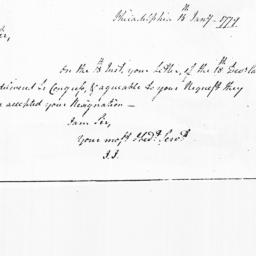 Philadelphia 18th Jany. 1779
Sir,
On the Inst. your Letter, of the 18th Decr. la
delivered to Congress, & agreeable to your Request they
accepted your Resignation —
I am Sir,
Your most Obedt. Servt.
J.J.